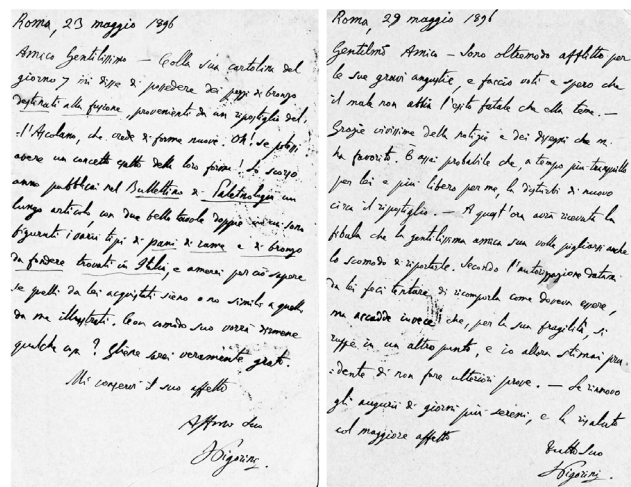 Roma, 23 maggio 1896
Amico Gentilissimo — Colla sua cartolina del
giorno 7 mi disse di possedere dei pezzi di bronzo
destinati alla fusione, provenienti da un ripostiglio del
l'Ascolano, che crede di forme nuove. Oh! se potessi
avere un concetto esatto delle loro forme! Lo scorso
anno pubblicai nel Bullettino di Paletnologia un
lungo articolo, con due belle tavole doppie in cui sono
figurati i varii tipi di pani di rame e di bronzo
da fondere trovati in Italia, e amerei perciò sapere
se quelli da lei acquistati sieno o no simili a quelli
da me illustrati. Con comodo suo vorrà dirmene
qualche cosa? Gliene sarei veramente grato.
Mi conservi il suo affetto
Affmo Suo
LPigorini.
Roma, 29 maggio 1896
Gentilmo Amico — Sono oltremodo afflitto per
le sue gravi angustie, e faccio voti e spero che
il male non abbia l'esito fatale che ella teme. —
Grazie vivissime della notizie e dei disegni che m.
ha favorito. È assai probabile che, a tempo più tranquillo
per lei e più libero per me, la disturbi di nuovo
circa il ripostiglio. — A quest'ora avrà ricevuta la
fibula che la gentilissima amica sua volle pigliarsi anche
lo scomodo di riportarle. Secondo l'autorizzazione datami
da lei feci tentare di ricomporla come doveva essere,
ma accadde invece che, per la sua fragilità, si
ruppe in un altro punto, e io allora stimai pru
dente di non fare ulteriori prove. — Le rinnovo
gli augurii di giorni più sereni, e la risaluto
col maggiore affetto
Tutto Suo
LPigorini.